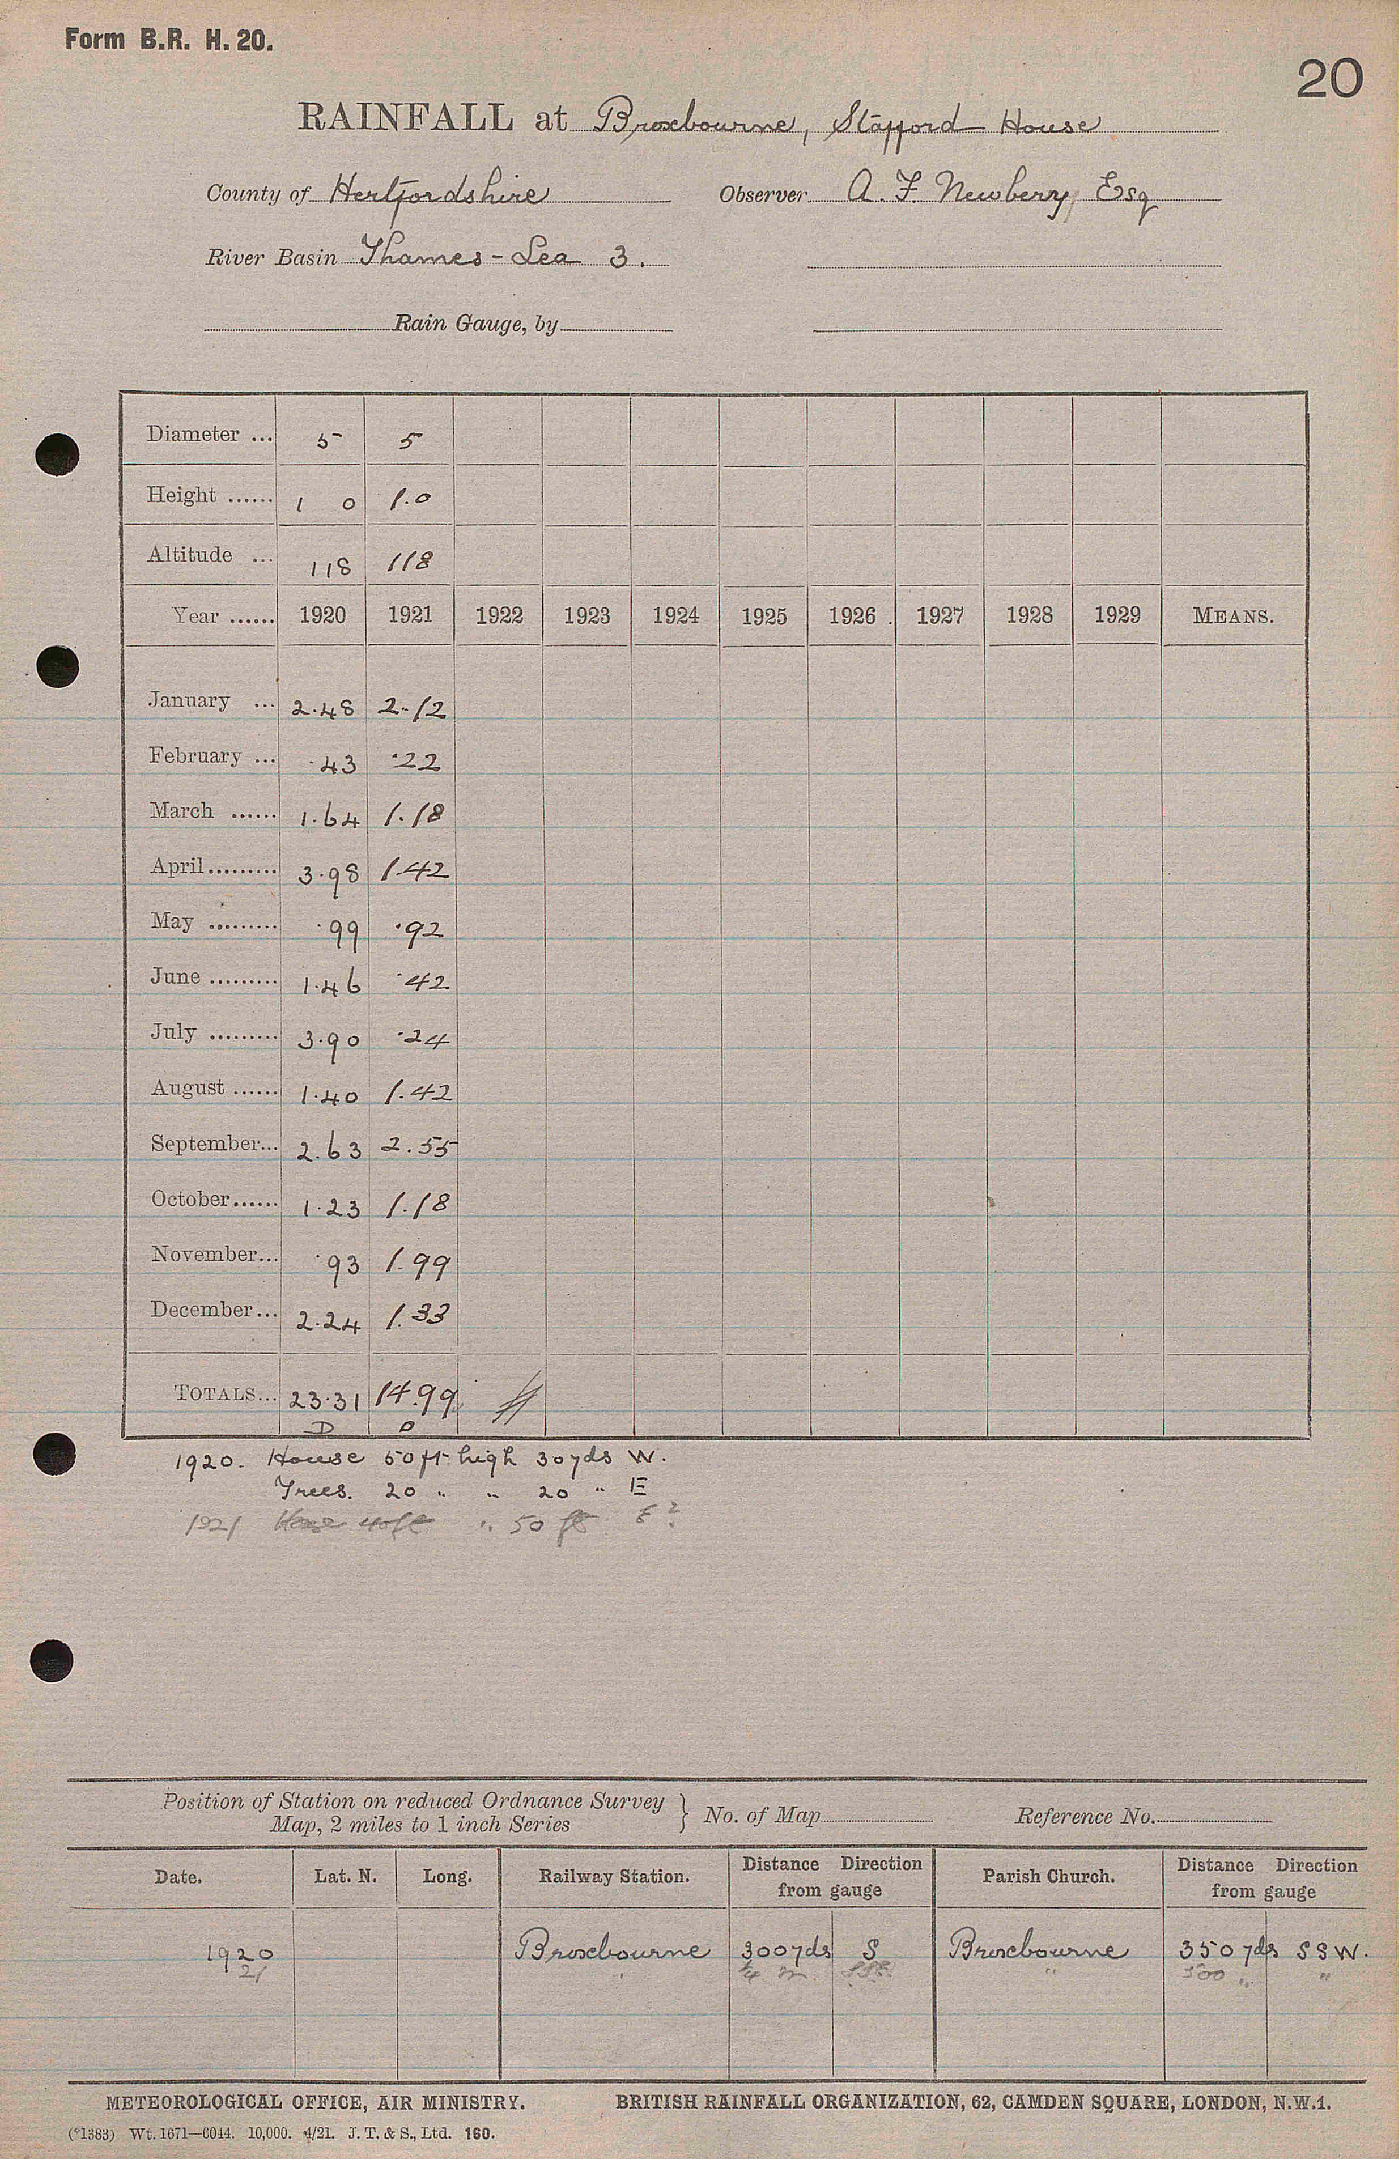 Form B.R. H. 20.
20
RAINFALL at Broxbourne, Stafford House
County of Hertfordshire Observer A. F. Newbery, Esq
River Basin Thames - Lea 3.
Rain Gauge, by
Diameter ... 5 5
Height ...... 1 0 1.0
Altitude ... 118 118
Year ...... 1920 1921 1922 1923 1924 1925 1926 1927 1928 1929 MEANS.
January ... 2.48 2.12
February ... .43 .22
March ...... 1.64 1.18
April......... 3.98 1.42
May ......... .99 .92
June ......... 1.46 .42
July ......... 3.90 .24
August ...... 1.40 1.42
September... 2.63 2.55
October...... 1.23 1.18
November... .93 1.99
December... 2.24 1.33
TOTALS... 23.31 14.99
D D
1920. House 50 ft high 30 yds W.
Trees. 20 " " 20 " E
1921 House 40 ft " 50 ft E ?
Position of Station on reduced Ordnance Survey
Map, 2 miles to 1 inch Series } No. of Map Reference No.
Date. Lat. N. Long. Railway Station. Distance Direction from gauge Parish Church. Distance Direction from gauge
1920 Broxbourne 300 yds S Broxbourne 350 yds S S W.
21 " 1/4 m SSE " 500 " "
METEOROLOGICAL OFFICE, AIR MINISTRY. BRITISH RAINFALL ORGANIZATION, 62, CAMDEN SQUARE, LONDON, N.W.1.
(*1383) Wt. 1671—6044. 10,000. 4/21. J. T. & S., Ltd. 160.